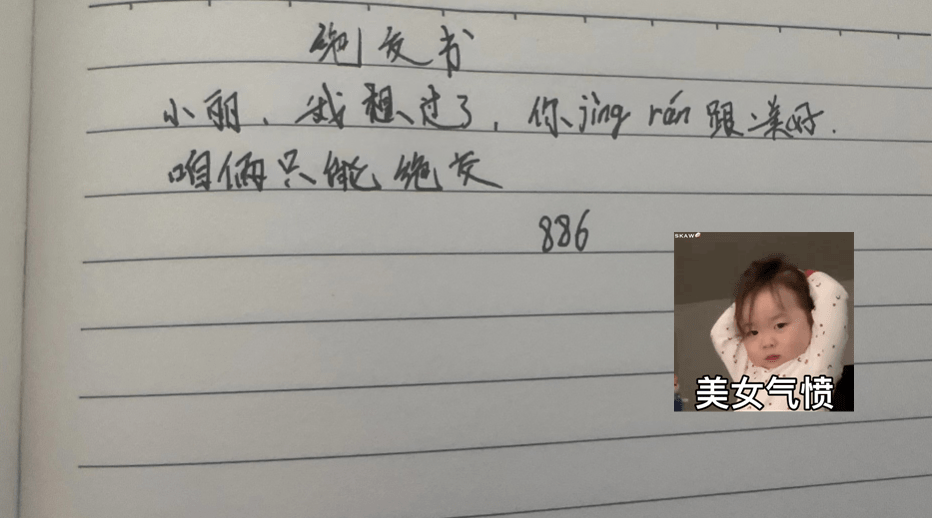 绝友书
小丽、我想过了,你jìng rán跟二美好.
咱俩只能绝交
886
SKAW
美女气愤